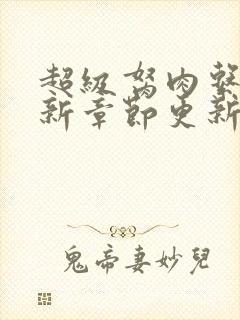 超級努肉系
新章節更新
鬼帝妻妙兒